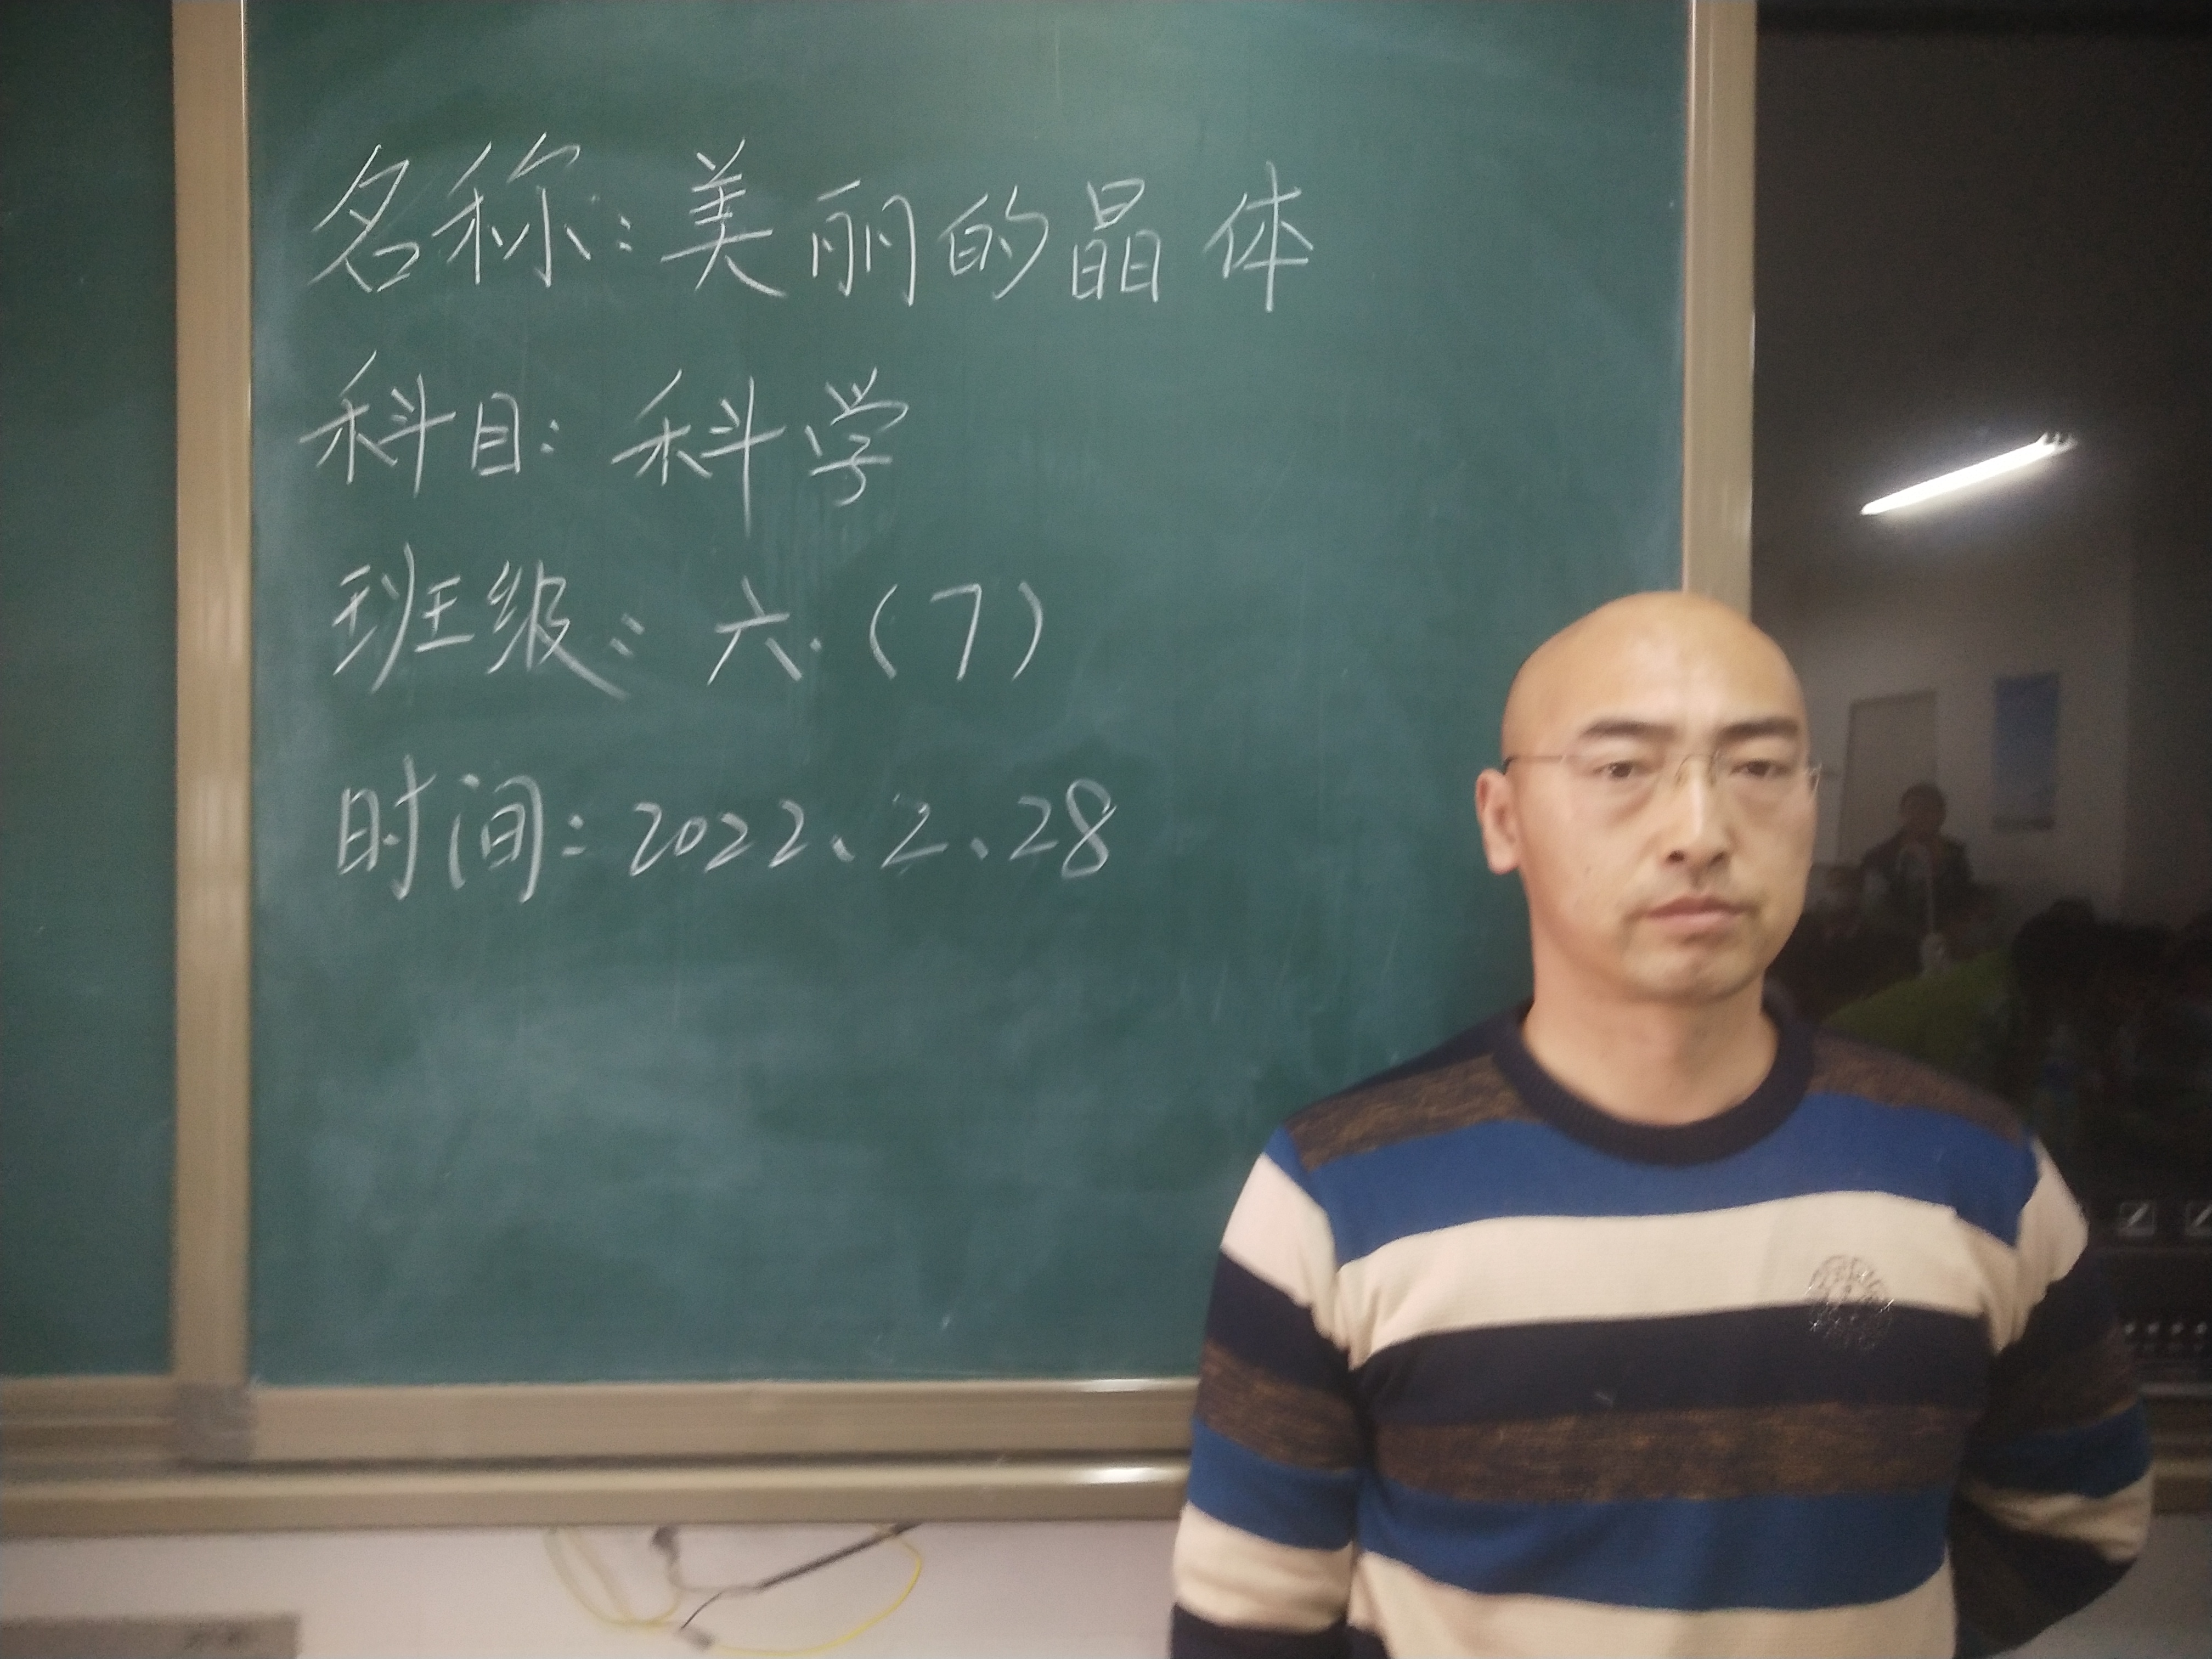 名称：美丽的晶体
科目：科学
班级：六.（7）
时间：2022、2、28